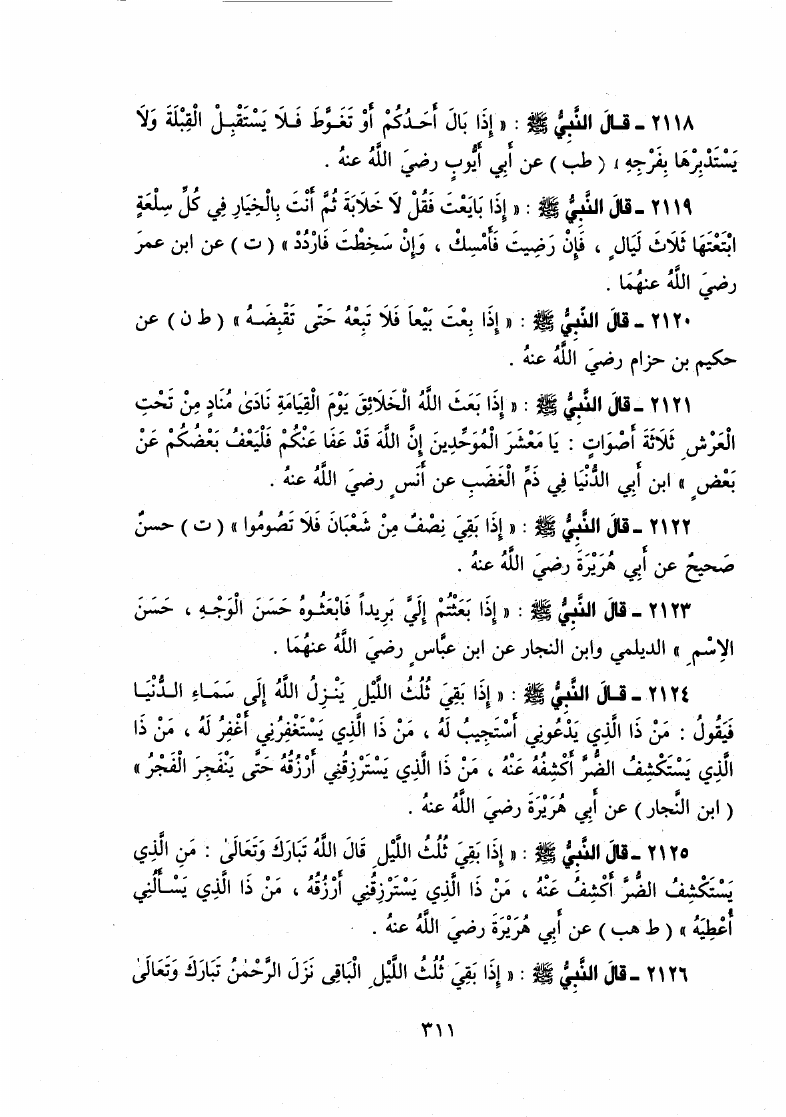 ٢١١٨ ـ قَـالَ النَّبِيُّ ﷺ : « إِذَا بَالَ أَحَـدُكُمْ أَوْ تَغَـوَّطَ فَـلَا يَسْتَقْبِـلِ الْقِبْلَةَ وَلَا
يَسْتَدْبِرْهَا بِفَرْجِهِ » ( طب ) عن أبي أيُّوبٍ رضيَ اللَّهُ عنهُ .
٢١١٩ ـ قَالَ النَّبِيُّ ﷺ : « إِذَا بَايَعْتَ فَقُلْ لَا خَلَابَةَ ثُمَّ أَنْتَ بِالْخِيَارِ فِي كُلِّ سِلْعَةٍ
ابْتَعْتَهَا ثَلَاثَ لَيَالٍ ، فَإِنْ رَضِيتَ فَأَمْسِكْ ، وَإِنْ سَخِطْتَ فَارْدُدْ » ( ت ) عن ابن عمرَ
رضيَ اللَّهُ عنهُمَا .
٢١٢٠ ـ قَالَ النَّبِيُّ ﷺ : « إِذَا بِعْتَ بَيْعاً فَلَا تَبِعْهُ حَتَّى تَقْبِضَـهُ » ( ط ن ) عن
حكيم بن حزام رضيَ اللَّهُ عنهُ .
٢١٢١ ـ قَالَ النَّبِيُّ ﷺ : « إِذَا بَعَثَ اللَّهُ الْخَلَائِقَ يَوْمَ الْقِيَامَةِ نَادَىٰ مُنَادٍ مِنْ تَحْتِ
الْعَرْشِ ثَلَاثَةَ أَصْوَاتٍ : يَا مَعْشَرَ الْمُوَحِّدِينَ إِنَّ اللَّهَ قَدْ عَفَا عَنْكُمْ فَلْيَعْفُ بَعْضُكُمْ عَنْ
بَعْضٍ » ابن أبي الدُّنْيَا فِي ذَمِّ الْغَضَبِ عن أَنَسٍ رضيَ اللَّهُ عنهُ .
٢١٢٢ ـ قَالَ النَّبِيُّ ﷺ : « إِذَا بَقِيَ نِصْفٌ مِنْ شَعْبَانَ فَلَا تَصُومُوا » ( ت ) حسنٌ
صَحيحٌ عن أبي هُرَيْرَةَ رضيَ اللَّهُ عنهُ .
٢١٢٣ ـ قَالَ النَّبِيُّ ﷺ : « إِذَا بَعَثْتُمْ إِلَيَّ بَرِيداً فَابْعَثُـوهُ حَسَنَ الْوَجْـهِ ، حَسَنَ
الاِسْمِ » الديلمي وابن النجار عن ابن عبَّاسٍ رضيَ اللَّهُ عنهُمَا .
٢١٢٤ ـ قَـالَ النَّبِيُّ ﷺ : « إِذَا بَقِيَ ثُلُثُ اللَّيْلِ يَنْـزِلُ اللَّهُ إِلَى سَمَـاءِ الـدُّنْيَـا
فَيَقُولُ : مَنْ ذَا الَّذِي يَدْعُونِي أَسْتَجِيبُ لَهُ ، مَنْ ذَا الَّذِي يَسْتَغْفِرُنِي أَغْفِرُ لَهُ ، مَنْ ذَا
الَّذِي يَسْتَكْشِفُ الضُّرَّ أَكْشِفُهُ عَنْهُ ، مَنْ ذَا الَّذِي يَسْتَرْزِقُنِي أَرْزُقُهُ حَتَّى يَنْفَجِرَ الْفَجْرُ »
( ابن النَّجار ) عن أبي هُرَيْرَةَ رضيَ اللَّهُ عنهُ .
٢١٢٥ ـ قَالَ النَّبِيُّ ﷺ : « إِذَا بَقِيَ ثُلُثُ اللَّيْلِ قَالَ اللَّهُ تَبَارَكَ وَتَعَالَىٰ : مَنِ الَّذِي
يَسْتَكْشِفُ الضُّرَّ أَكْشِفُ عَنْهُ ، مَنْ ذَا الَّذِي يَسْتَرْزِقُنِي أَرْزُقُهُ ، مَنْ ذَا الَّذِي يَسْـأَلُنِي
أُعْطِيَهُ » ( ط هب ) عن أبي هُرَيْرَةَ رضيَ اللَّهُ عنهُ .
٢١٢٦ ـ قَالَ النَّبِيُّ ﷺ : « إِذَا بَقِيَ ثُلُثُ اللَّيْلِ الْبَاقِى نَزَلَ الرَّحْمٰنُ تَبَارَكَ وَتَعَالَىٰ
٣١١